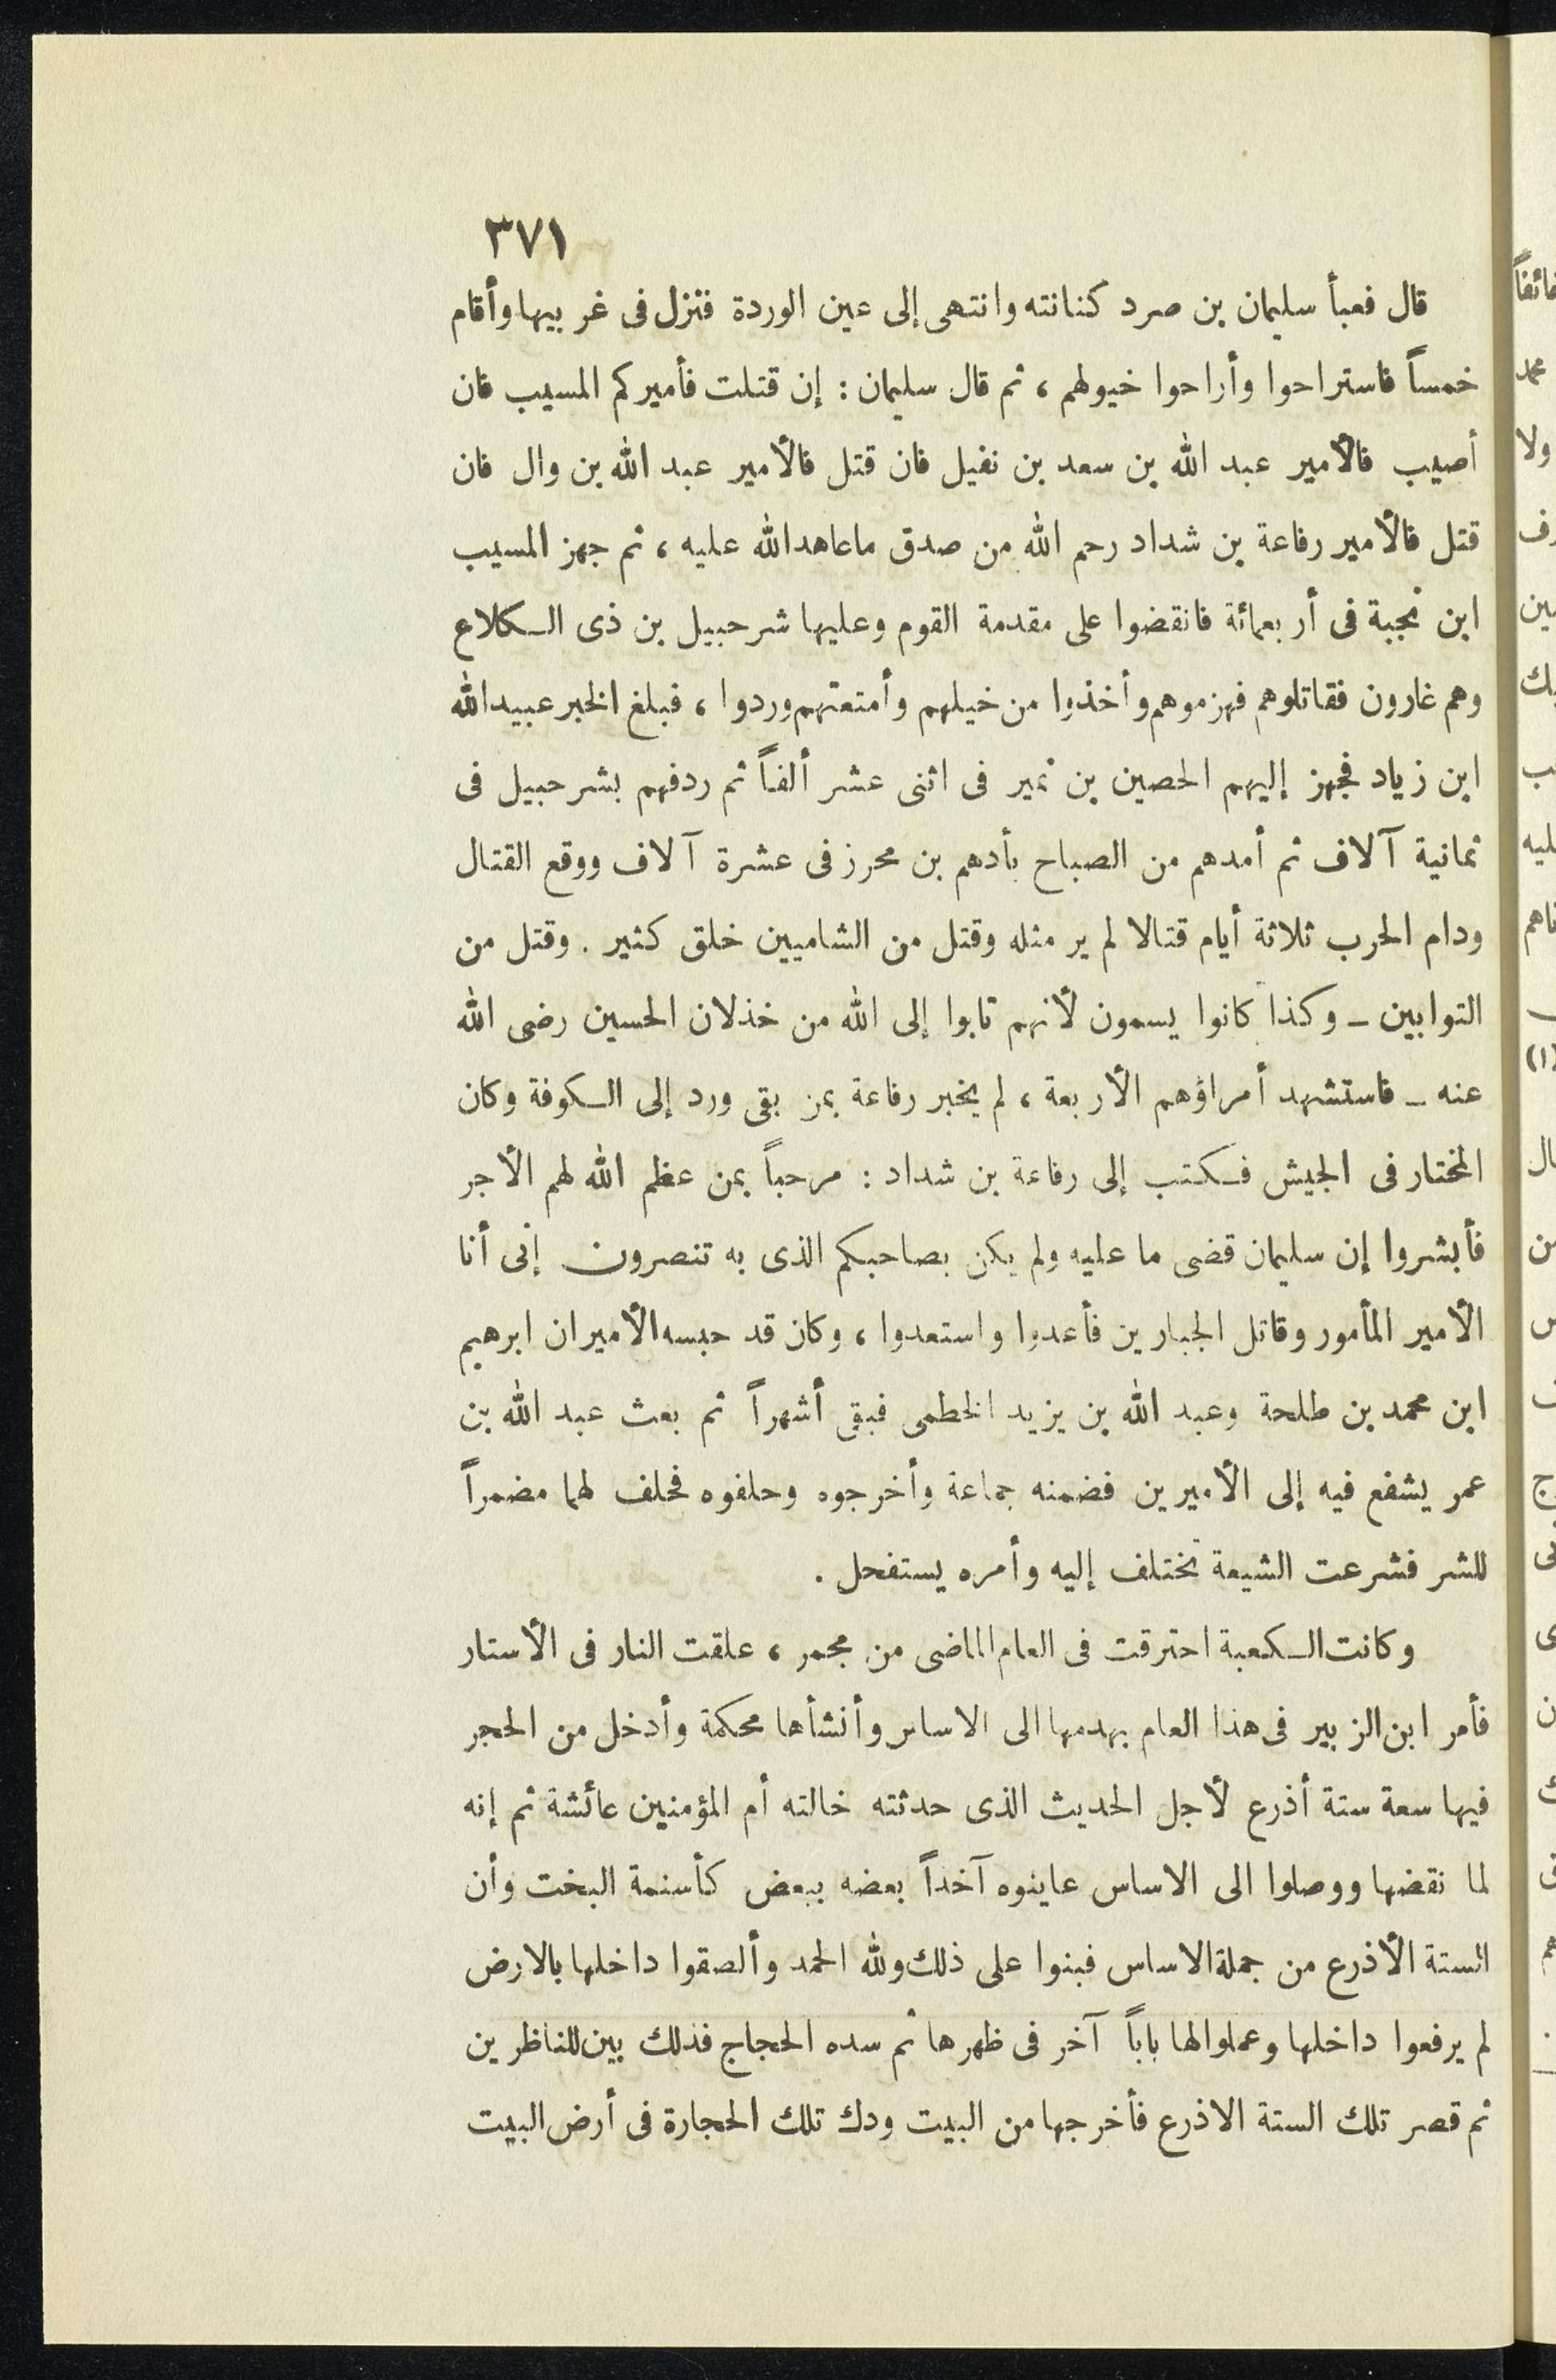 ٣٧١
قال فعبأ سليمان بن صرد كنانته وانتهى إلى عين الوردة فنزل فى غربيها وأقام
خمساً فاستراحوا وأراحوا خيولهم ، ثم قال سليمان : إن قتلت فأميركم المسيب فان
أصيب فالأمير عبد الله بن سعد بن نفيل فان قتل فالأمير عبد الله بن وال فان
قتل فالأمير رفاعة بن شداد رحم الله من صدق ماعاهد الله عليه ، ثم جهز المسيب
ابن نجبة فى أربعمائة فانقضوا على مقدمة القوم وعليها شرحبيل بن ذى الكلاع
وهم غارون فقاتلوهم فهزموهم وأخذوا من خيلهم وأمتعتهم وردوا ، فبلغ الخبر عبيد الله
ابن زياد فجهز إليهم الحصين بن نمير فى اثنى عشر ألفاً ثم ردفهم بشرحبيل فى
ثمانية آلاف ثم أمدهم من الصباح بأدهم بن محرز فى عشرة آلاف ووقع القتال
ودام الحرب ثلاثة أيام قتالا لم ير مثله وقتل من الشاميين خلق كثير . وقتل من
التوابين ــ وكذا كانوا يسمون لأنهم تابوا إلى الله من خذلان الحسين رضى الله
عنه ــ فاستشهد أمراؤهم الأربعة ، لم يخبر رفاعة بمن بقى ورد إلى الكوفة وكان
المختار فى الجيش فكتب إلى رفاعة بن شداد : مرحباً بمن عظم الله لهم الأجر
فأبشروا إن سليمان قضى ما عليه ولم يكن بصاحبكم الذى به تنصرون إنى أنا
الأمير المأمور وقاتل الجبارين فأعدوا واستعدوا ، وكان قد حبسه الأميران ابرهيم
ابن محمد بن طلحة وعبد الله بن يزيد الخطمى فبقى أشهراً ثم بعث عبد الله بن
عمر يشفع فيه إلى الأميرين فضمنه جماعة وأخرجوه وحلفوه فحلف لهما مضمراً
للشر فشرعت الشيعة تختلف إليه وأمره يستفحل .
وكانت الكعبة احترقت فى العام الماضى من مجمر ، علقت النار فى الأستار
فأمر ابن الزبير فى هذا العام بهدمها الى الاساس وأنشأها محكمة وأدخل من الحجر
فيها سعة ستة أذرع لأجل الحديث الذى حدثته خالته أم المؤمنين عائشة ثم إنه
لما نقضها ووصلوا الى الاساس عاينوه آخذاً بعضه ببعض كأسنمة البخت وأن
الستة الأذرع من جملة الاساس فبنوا على ذلك ولله الحمد وألصقوا داخلها بالارض
لم يرفعوا داخلها وعملوا لها باباً آخر فى ظهرها ثم سده الحجاج فذلك بين للناظرين
ثم قصر تلك الستة الاذرع فأخرجها من البيت ودك تلك الحجارة فى أرض البيت